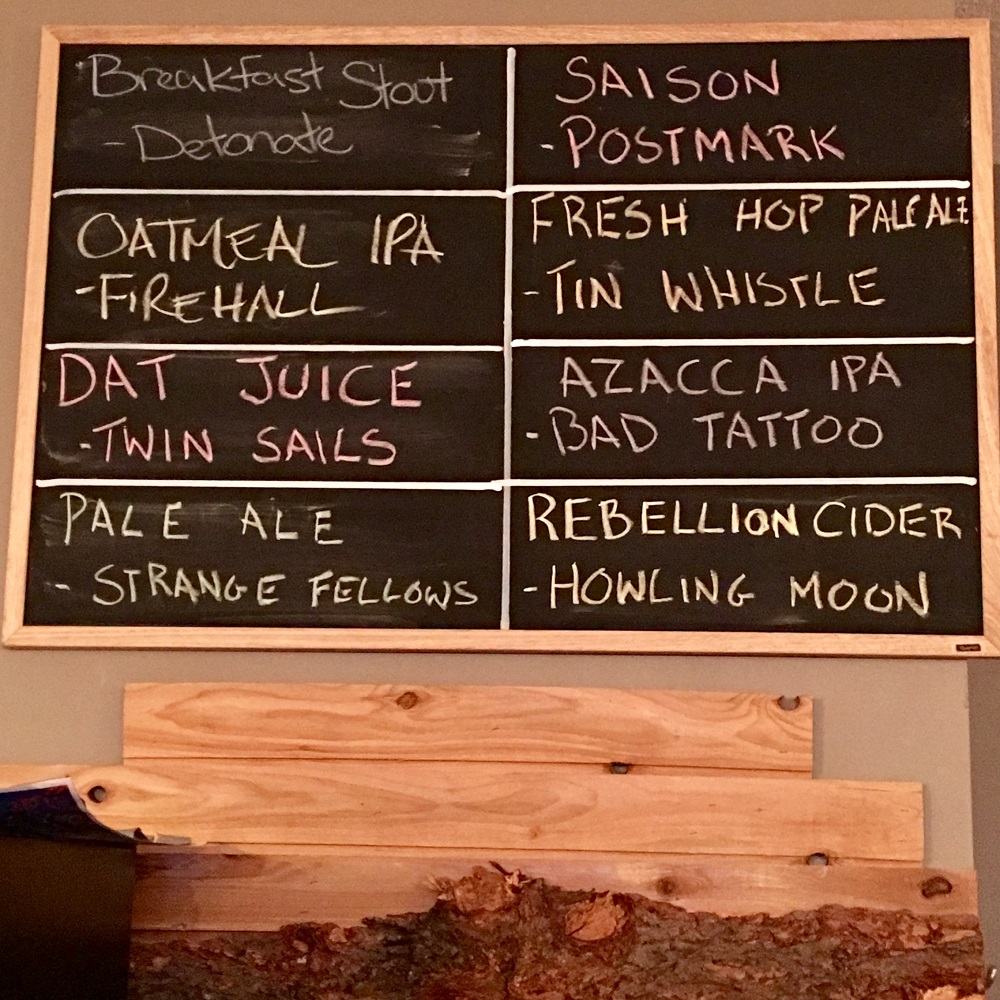 Breakfast Stout
- Detonate
OATMEAL IPA
- FIREHALL
DAT JUICE
- TWIN SAILS
PALE ALE
- STRANGE FELLOWS
SAISON
- POSTMARK
FRESH HOP PALE ALE
- TIN WHISTLE
AZACCA IPA
- BAD TATTOO
REBELLION CIDER
- HOWLING MOON